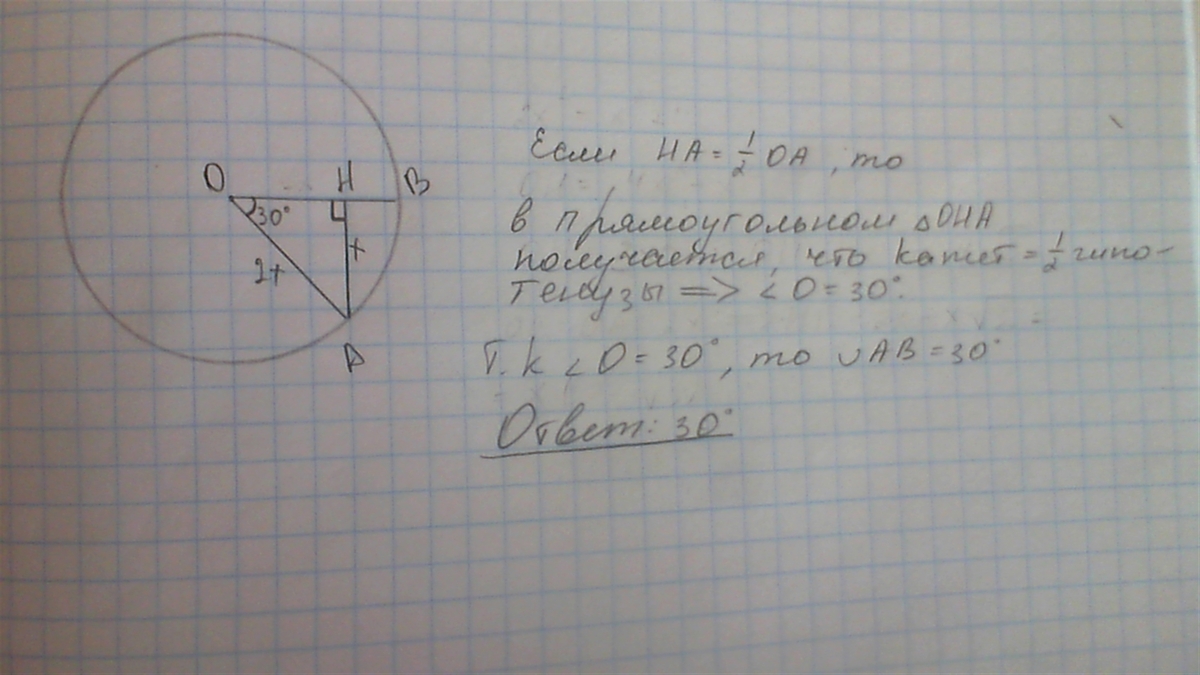 О
Н
В
30°
2x
x
А
Если НА = 1/2 ОА, то
в прямоугольном △ОНА
получается, что катет = 1/2 гипо-
тенузы => ∠О = 30°.
Т. к ∠О = 30°, то ∪АВ = 30°
Ответ: 30°